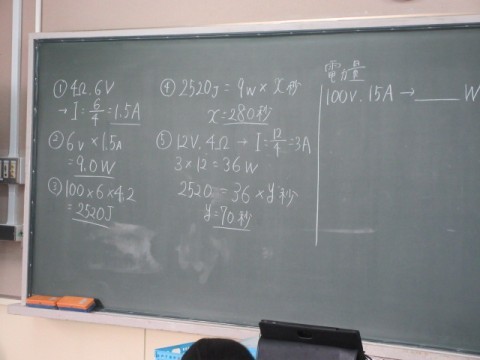 ① 4Ω.6V
→ I = 6/4 = 1.5A
② 6V × 1.5A
= 9.0W
③ 100×6×4.2
= 2520J
④ 2520J = 9W × x秒
x = 280秒
⑤ 12V.4Ω → I = 12/4 = 3A
3 × 12 = 36W
2520 = 36 × y秒
y = 70秒
電力量
100V.15A → ____ W